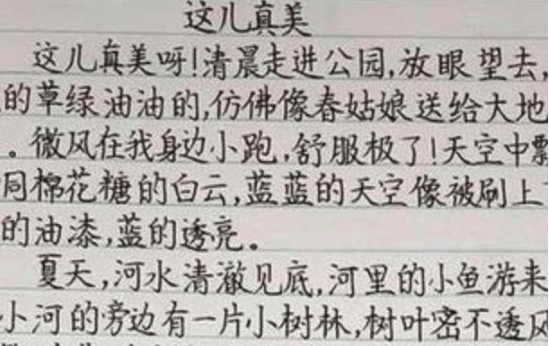 这儿真美
这儿真美呀!清晨走进公园,放眼望去,
的草绿油油的,仿佛像春姑娘送给大地
。微风在我身边小跑,舒服极了!天空中飘
同棉花糖的白云,蓝蓝的天空像被刷上
的油漆,蓝的透亮。
夏天,河水清澈见底,河里的小鱼游来
小河的旁边有一片小树林,树叶密不透风